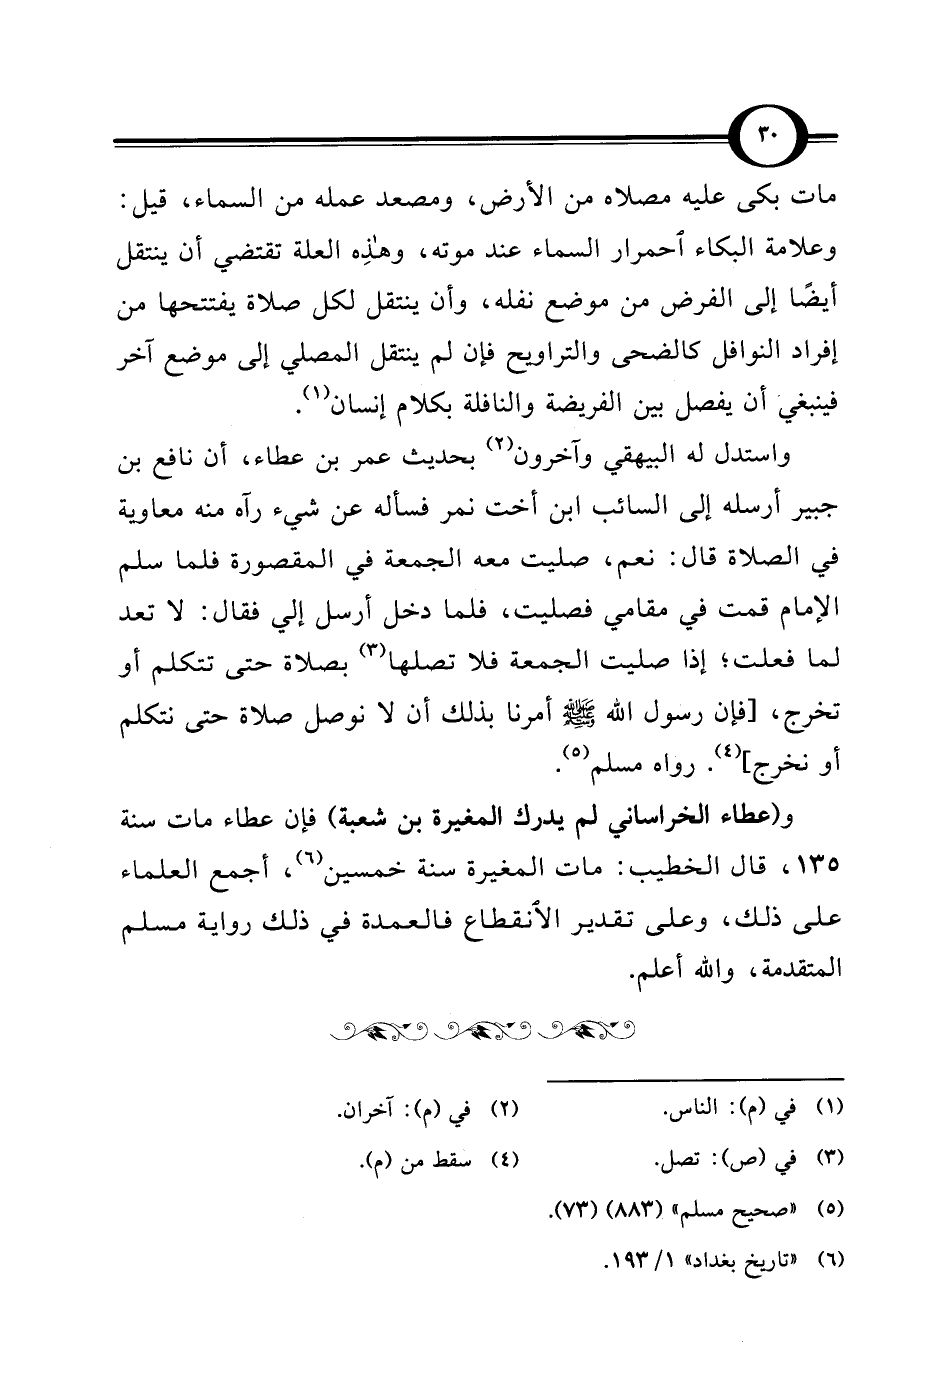 ٣٠
مات بكى عليه مصلاه من الأرض، ومصعد عمله من السماء، قيل:
وعلامة البكاء ٱحمرار السماء عند موته، وهٰذِه العلة تقتضي أن ينتقل
أيضًا إلى الفرض من موضع نفله، وأن ينتقل لكل صلاة يفتتحها من
إفراد النوافل كالضحى والتراويح فإن لم ينتقل المصلي إلى موضع آخر
فينبغي أن يفصل بين الفريضة والنافلة بكلام إنسان(١).
واستدل له البيهقي وآخرون(٢) بحديث عمر بن عطاء، أن نافع بن
جبير أرسله إلى السائب ابن أخت نمر فسأله عن شيء رآه منه معاوية
في الصلاة قال: نعم، صليت معه الجمعة في المقصورة فلما سلم
الإمام قمت في مقامي فصليت، فلما دخل أرسل إلي فقال: لا تعد
لما فعلت؛ إذا صليت الجمعة فلا تصلها(٣) بصلاة حتى تتكلم أو
تخرج، [فإن رسول الله ﷺ أمرنا بذلك أن لا نوصل صلاة حتى نتكلم
أو نخرج](٤). رواه مسلم(٥).
و(عطاء الخراساني لم يدرك المغيرة بن شعبة) فإن عطاء مات سنة
١٣٥، قال الخطيب: مات المغيرة سنة خمسين(٦)، أجمع العلماء
على ذلك، وعلى تقدير الٱنقطاع فالعمدة في ذلك رواية مسلم
المتقدمة، والله أعلم.
(١) في (م): الناس. (٢) في (م): آخران.
(٣) في (ص): تصل. (٤) سقط من (م).
(٥) «صحيح مسلم» (٨٨٣) (٧٣).
(٦) «تاريخ بغداد» ١/ ١٩٣.